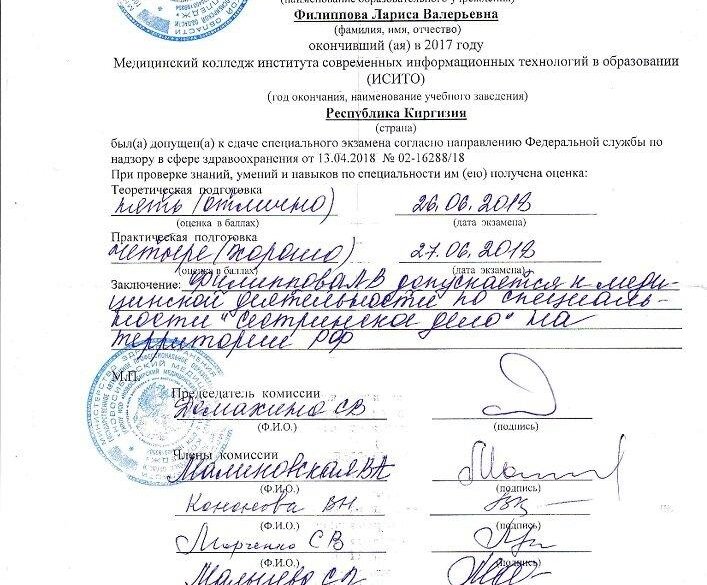 (наименование образовательного учреждения)
Филиппова Лариса Валерьевна
(фамилия, имя, отчество)
окончивший (ая) в 2017 году
Медицинский колледж института современных информационных технологий в образовании
(ИСИТО)
(год окончания, наименование учебного заведения)
Республика Киргизия
(страна)
был(а) допущен(а) к сдаче специального экзамена согласно направлению Федеральной службы по
надзору в сфере здравоохранения от 13.04.2018 № 02-16288/18
При проверке знаний, умений и навыков по специальности им (ею) получена оценка:
Теоретическая подготовка
пять (отлично) 26.06.2018
(оценка в баллах) (дата экзамена)
Практическая подготовка
четыре (хорошо) 27.06.2018
(оценка в баллах) (дата экзамена)
Заключение: Филиппова ЛВ допускается к меди-
цинской деятельности по специаль-
ности "Сестринское дело" на
территории РФ
М.П.
Председатель комиссии
Домахина СВ
(Ф.И.О.) (подпись)
Члены комиссии
Малиновская ВА
(Ф.И.О.) (подпись)
Кононова ВН.
(Ф.И.О.) (подпись)
Марченко СВ
(Ф.И.О.) (подпись)